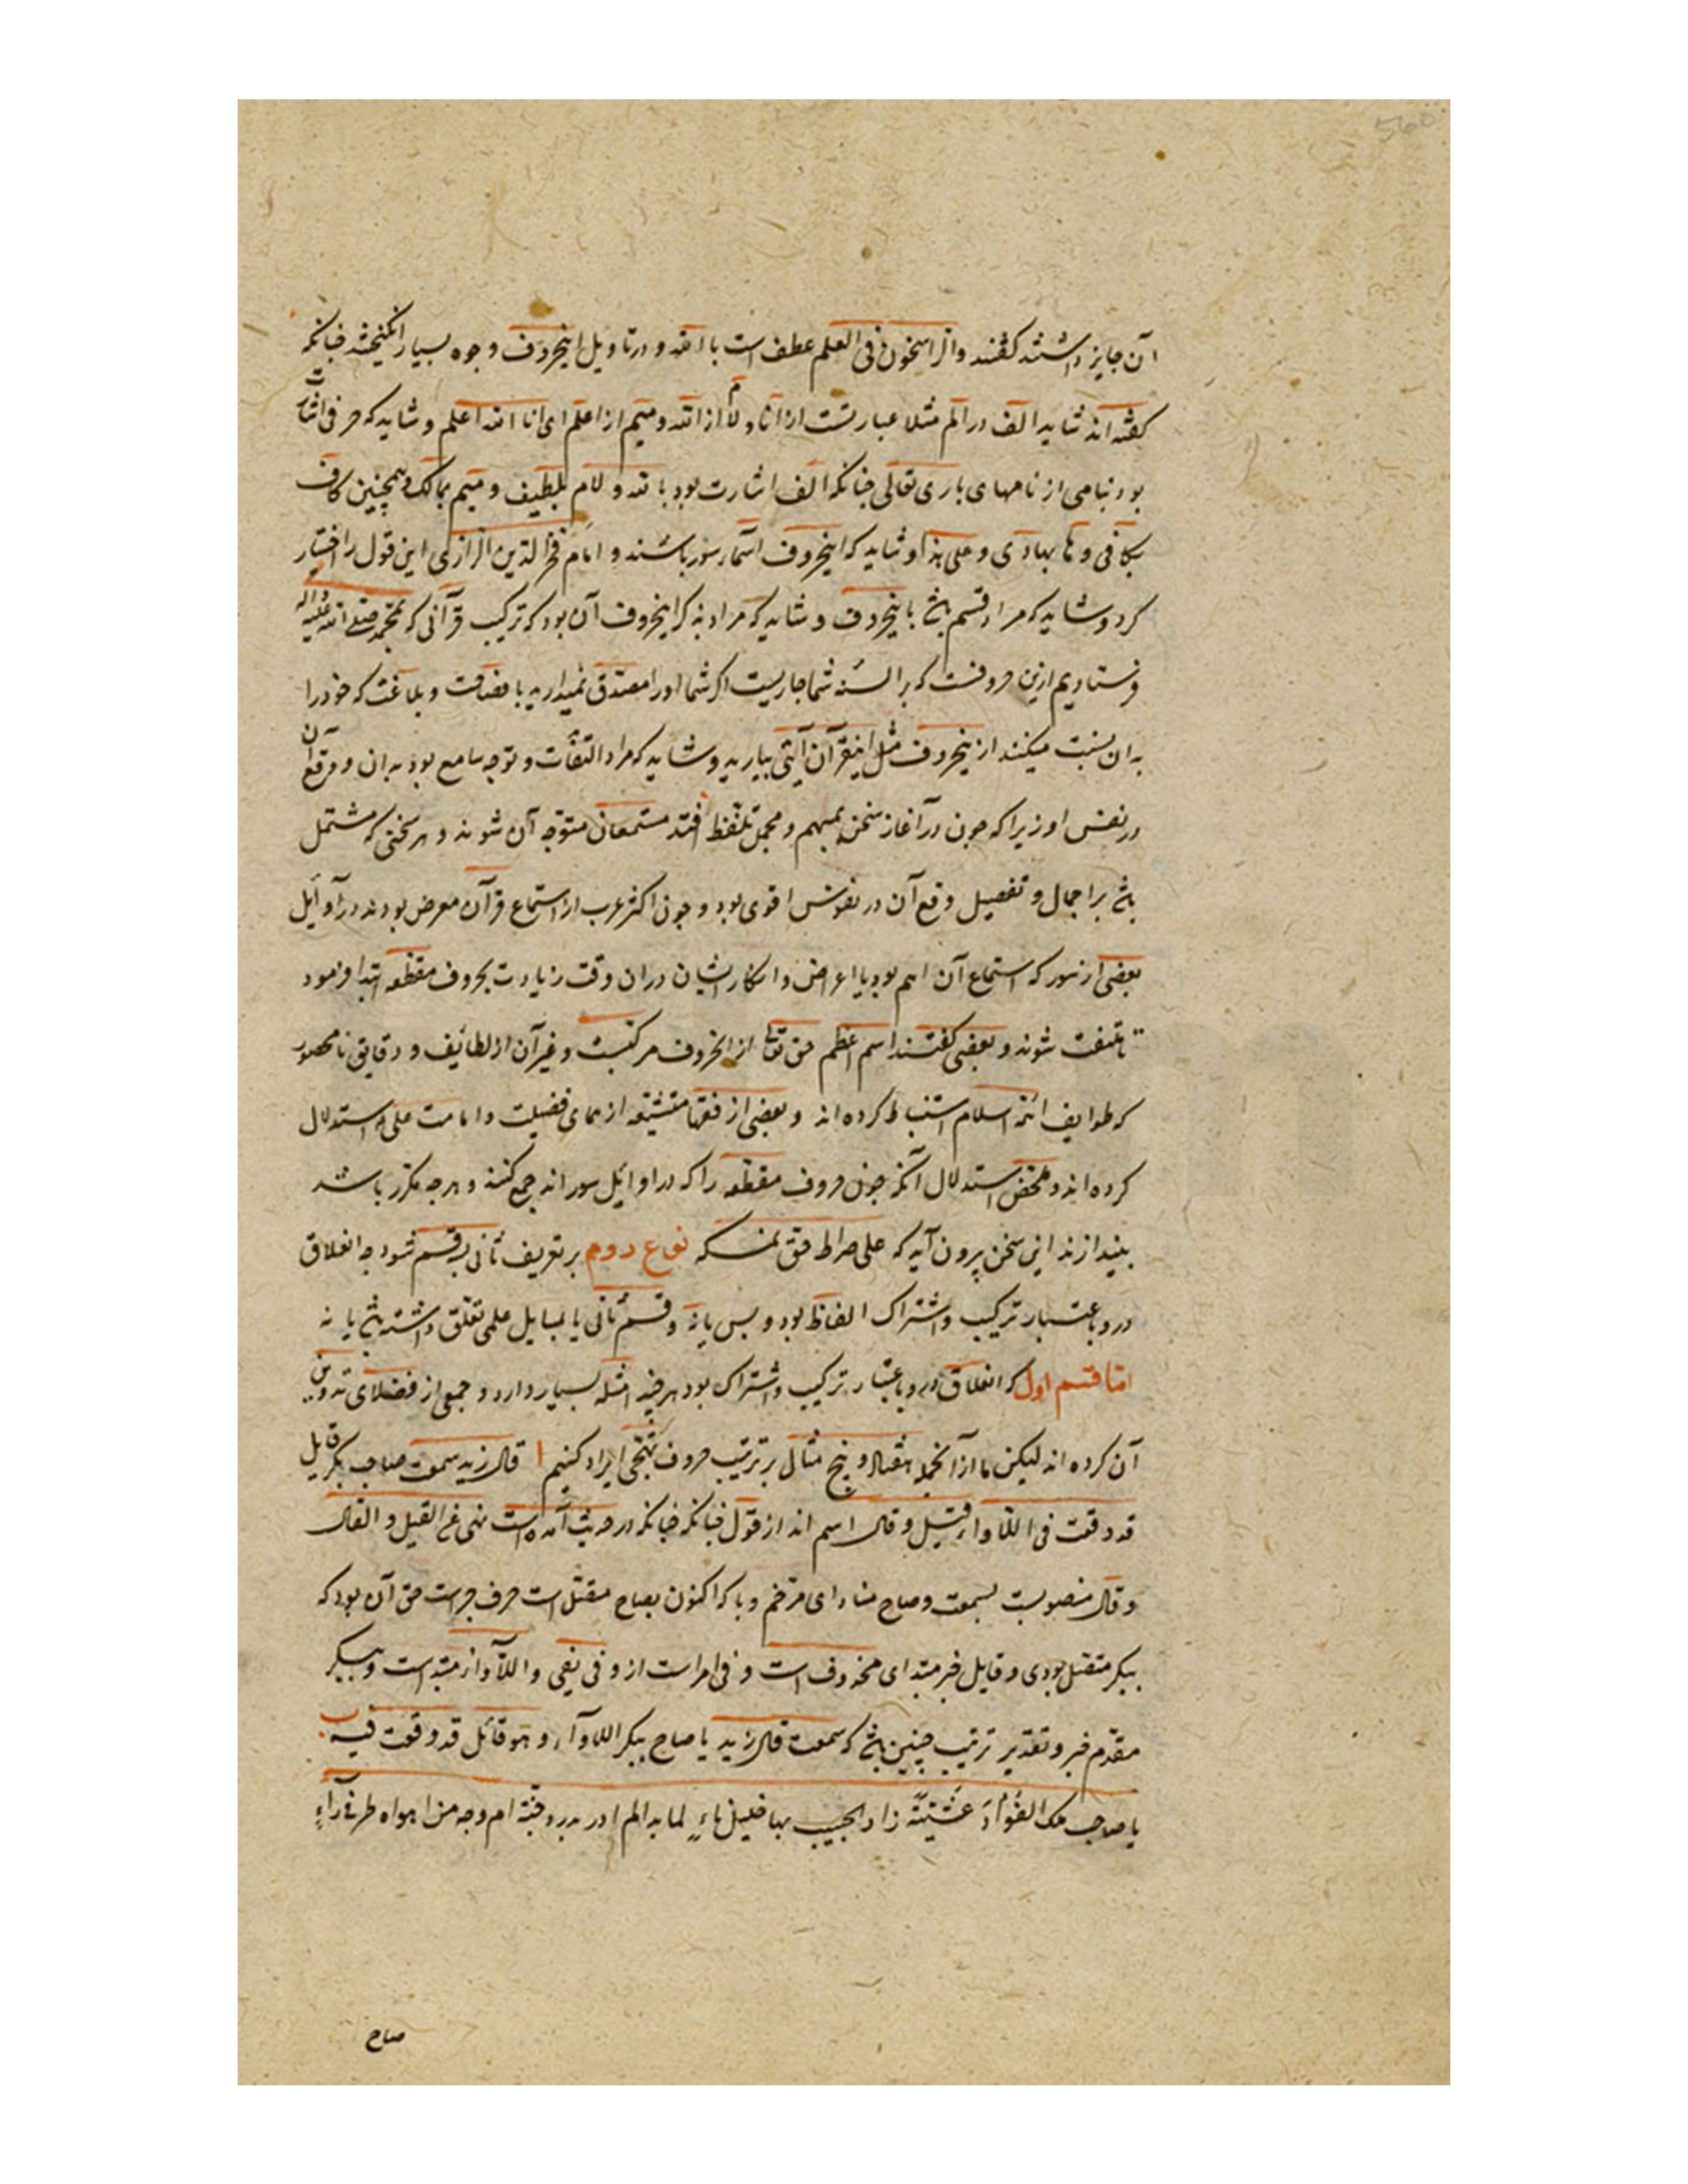 آن جایز داشتند گفتند والراسخون فی العلم عطف است با الله و در تاویل اینحروف وجوه بسیار انگیختند چنانکه
گفته‌اند شاید الف در الم مثلا عبارتست از انا و لام از الله و میم از اعلم ای انا الله اعلم و شاید که حرفی اشارت
بود بنامی از نامهای باری تعالی چنانکه الف اشارت بود بالله و لام بلطیف و میم بمالک و همچنین کاف
بکافی و ها بهادی و علی هذا و شاید که اینحروف اسماء سور باشند و امام فخر الدین الرازی این قول را اختیار
کرد و شاید که مراد قسم باشد باینحروف و شاید که مراد بذکر اینحروف آن بود که ترکیب قرآنی که بمحمد صلی الله علیه واله
فرستادیم ازین حروفست که بر السنه شما جاریست اگر شما او را مصدق نمیدارید با فصاحت و بلاغت که خود را
به ان نسبت میکنند ازینحروف مثل اینقرآن آیتی بیارید و شاید که مراد التفات و توجه سامع بود به ان و وقع آن
در نفس او زیرا که چون در آغاز سخن بمبهم و مجمل تلفظ افتد مستمعان متوجه آن شوند و هر سخنی که مشتمل
باشد بر اجمال و تفصیل وقع آن در نفوس اقوی بود و چون اکثر عرب از استماع قرآن معرض بودند در اوایل
بعضی از سور که استماع آن اهم بود یا اعراض و انکار ایشان در ان وقت زیادت بحروف مقطعه ابتدا فرمود
تا ملتفت شوند و بعضی گفتند اسم اعظم حق تعالی از انحروف مرکبست و غیر آن از لطائف و دقایق نامحصور
که طوایف ائمه اسلام استنباط کرده اند و بعضی از فقها متشیعه از معمای فضیلت و امامت علی استدلال
کرده اند و ملخص استدلال آنکه چون حروف مقطعه را که در اوایل سوراند جمع کنند و هر چه مکرر باشد
بیندازند این سخن برون آید که علی صراط حق نمسکه نوع دوم بر تعریف ثانی بدو قسم شود چه انغلاق
درو باعتبار ترکیب و اشتراک الفاظ بود و بس یا نه و قسم ثانی یا بمسایل علمی تعلق داشته باشد یا نه
اما قسم اول که انغلاق درو باعتبار ترکیب و اشتراک بود هر چند امثله بسیار دارد و جمعی از فضلای تدوین
آن کرده اند لیکن ما از آنجمله هفتاد و پنج مثال بر ترتیب حروف تهجی ایراد کنیم ا قال زید سمعت صاح بکر قایل
قد وقعت فی اللاواء قیل و قال اسم اند از قول چنانکه چنانکه در حدیث آمده است نهی عن القیل و القال
و قال منصوبست بسمعت و صاح منادای مرخم و با که اکنون بصاح متصل است حرف جر است حق آن بود که
ببکر متصل بودی و قایل خبر مبتدای محذوف است و فی امراست از وفی یفی و اللاواء مبتداست و ببکر
مقدم خبر و تقدیر ترتیب چنین باشد که سمعت قال زید یا صاح ببکر اللاواء و هو قائل قد وقعت فیه ب
یا صاحب ملک الفؤاد عشیة زار الحبیب بها خلیل ناء لما به الم ادر بدر دجنة ام وجه من اهواه طرفی راء
صاح